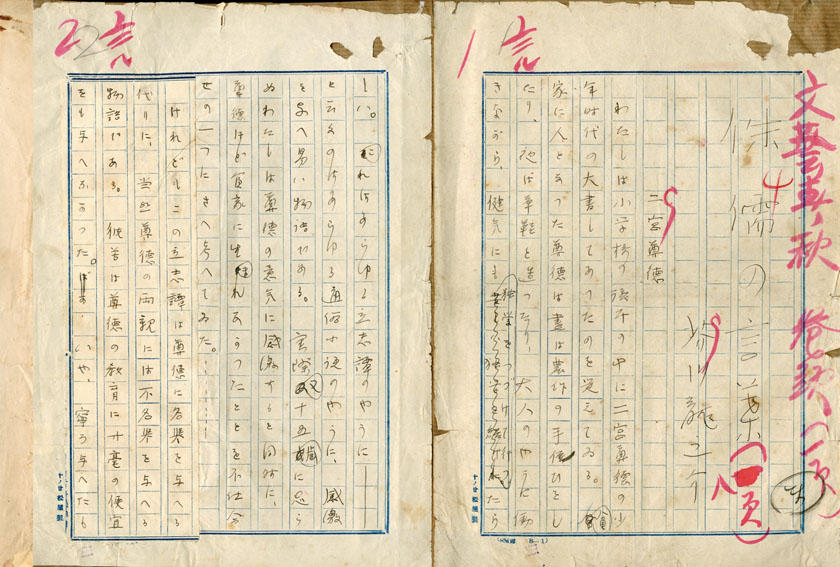 1
文藝春秋
侏儒の言葉
芥川龍之介
二宮尊徳
わたしは小学校の読本の中に二宮尊徳の少
年時代の大書してあつたのを覚えてゐる。貧
家に人となつた尊徳は昼は農作の手伝ひをし
たり、夜は草鞋を造つたり、大人のやうに働
きながら、健気にも独学をつづけて行つたら
十ノ廿 松屋製
2
しい。これはあらゆる立志譚のやうに――
と云ふのはあらゆる通俗小説のやうに、感激
を与へ易い物語である。実際又十五歳に足ら
ぬわたしは尊徳の意気に感激すると同時に、
尊徳ほど貧家に生れなかつたことを不仕合
せの一つにさへ考へてゐた。………
けれどもこの立志譚は尊徳に名誉を与へる
代りに、当然尊徳の両親には不名誉を与へる
物語である。彼等は尊徳の教育に寸毫の便宜
をも与へなかつた。いや、寧ろ与へたも
十ノ廿 松屋製